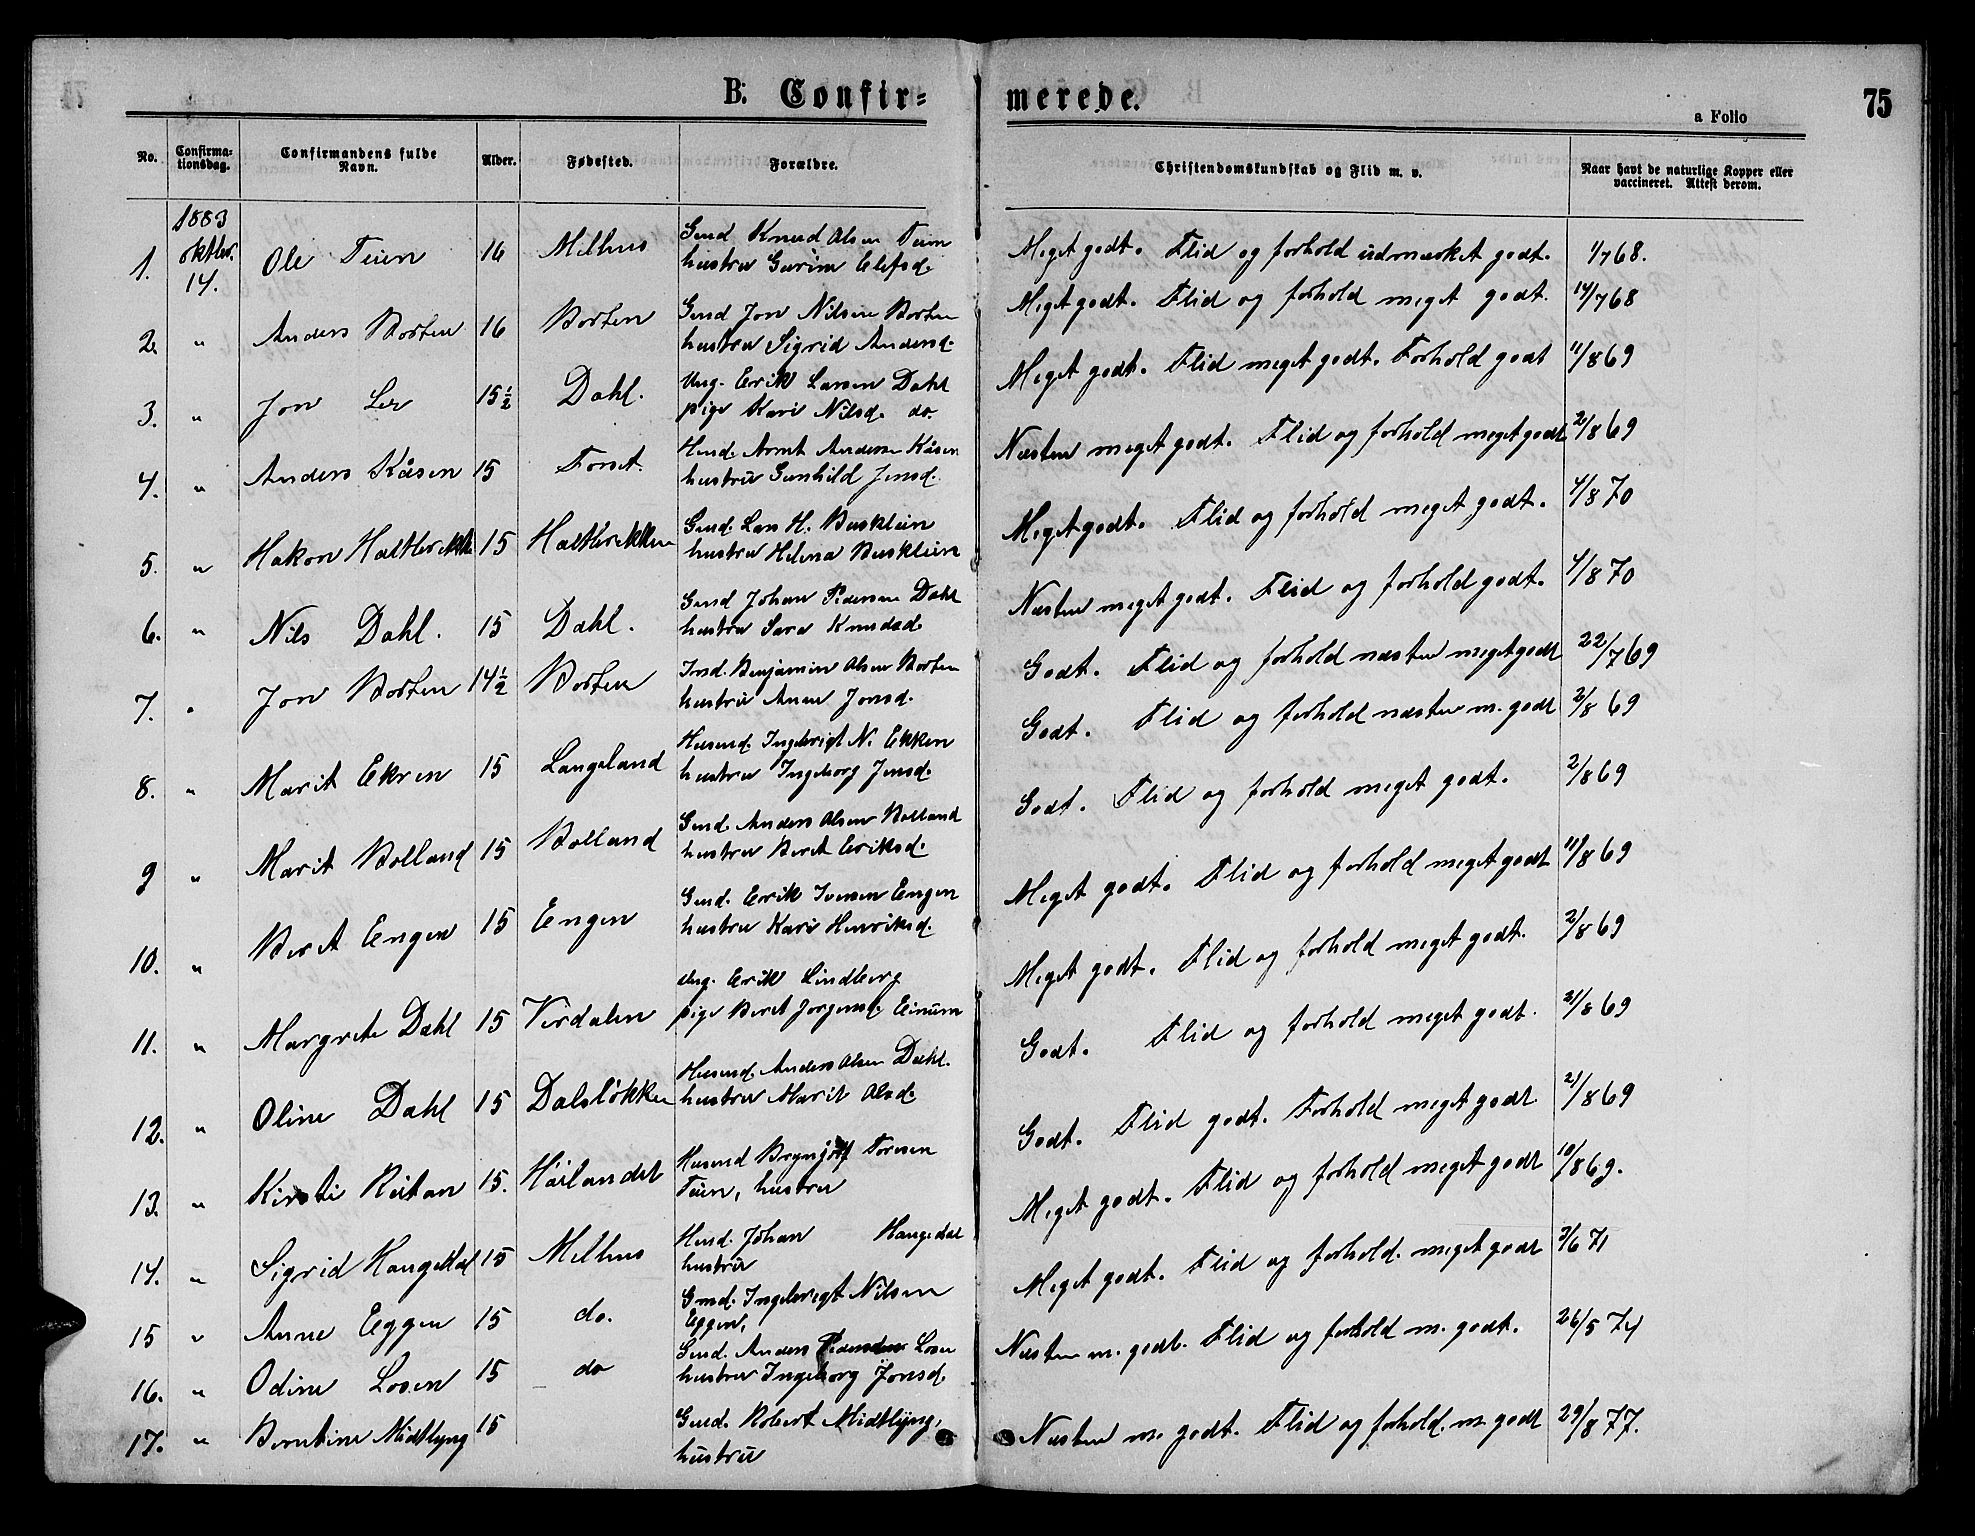 B. Confir=
merede.
a Folio
75
No.
Confirma-
tionsdag.
Confirmandens fulde
Navn.
Alder.
Fødested.
Forældre.
Christendomskundskab og Flid m. v.
Naar havt de naturlige Kopper eller
vaccineret. Attest derom.
1883
oktbr.
1. 14. Ole Teien 16 Melhus Gmd Knud Olsen Teien
hustru Guruine Elefsd. Meget godt. Flid og forhold udmærket godt. 1/7 68.
2. " Anders Borten 16 Borten Gmd Jon Nilsen Borten
hustru Sigrid Andersd. Meget godt. Flid og forhold meget godt. 14/7 68
3. " Jon Ler 15½ Dahl. Ung. Erik Larsen Dahl
pige Kari Nilsd. do Meget godt. Flid meget godt. Forhold godt 11/8 69
4. " Anders Kåsen 15 Forset. Husd. Arnt Andersen Kåsen
hustru Gunhild Jonsd. Næsten meget godt. Flid og forhold meget godt. 2/8 69
5. " Hakon Haltbrekken 15 Haltbrekken Gmd. Lars H. Busklein
hustru Helena Busklein Meget godt. Flid og forhold meget godt. 4/8 70
6. " Nils Dahl. 15 Dahl. Gmd Johan Pedersen Dahl
hustru Sara Knudsd. Næsten meget godt. Flid og forhold godt. 4/8 70
7. " Jon Borten 14½ Borten Insd. Benjamin Olsen Borten
hustru Anne Jonsd. Godt. Flid og forhold næsten meget godt 22/7 69
8. " Marit Ekren 15 Langeland Husmd. Ingebrigt N. Ekken
hustru Ingeborg Jonsd. Godt. Flid og forhold næsten m. godt 2/8 69
9 " Marit Bolland 15 Bolland Gmd. Anders Olsen Bolland
hustru Beret Eriksd. Godt. Flid og forhold meget godt. 2/8 69
10. " Beret Engen 15 Engen Gmd. Erik Iversen Engen
hustru Kari Henriksd. Meget godt. Flid og forhold meget godt 11/8 69
11. " Margrete Dahl 15 Verdalen Ung. Erik Lindberg
pige Beret Jorgensd. Einum Meget godt. Flid og forhold meget godt. 2/8 69
12. " Oline Dahl 15 Dalsløkken Husmd. Anders Olsen Dahl.
hustru Marit Olsd. Godt. Flid og forhold meget godt. 21/8 69
13. " Kirsti Reitan 15. Høilandet Husmd Brynjolf Toresen
Teien, hustru Godt. Flid godt. Forhold meget godt 21/8 69
14. " Sigrid Haugedal 15 Melhus Husd. Johan Haugedal
hustru Meget godt. Flid og forhold meget godt 10/8 69.
15 " Anne Eggen 15 do. Gmd. Ingebrigt Nilsen
Eggen, Meget godt. Flid og forhold. meget godt 3/6 71
16. " Odine Losen 15 do Gmd. Anders Pedersen Losen
hustru Ingeborg Jonsd. Næsten m. godt. Flid og forhold m. godt. 26/5 74
17. " Berntine Midtlyng 15 Gmd. Robert Midtlyng,
hustru Næsten m. godt. Flid og forhold m. godt 29/8 77.